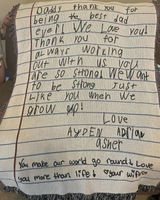 Daddy thank you for
being the best dad
ever! We love you!
Thank you for
always working
out with us you
are so strong. We want
to be strong just
Like you when We
grow up!
Love
AYDEN Adrian
asher
You make our world go round & Love
you more than life! & your wife